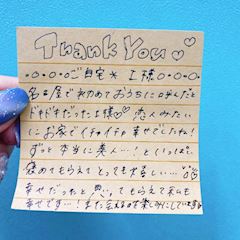 Thank You♡♡
・○・○・○ご自宅＊I様○・○・○・
名古屋で初めておうちに呼んだと
ドキドキだったI様♡♡ 恋人みたい
にお家でイチャイチャ幸せでしたね!
ずっと本当に美人…!といっぱい
褒めてもらえてとても嬉しい…
幸せだったと思ってもらえて私も
幸せです…! また会えるの楽しみにしています